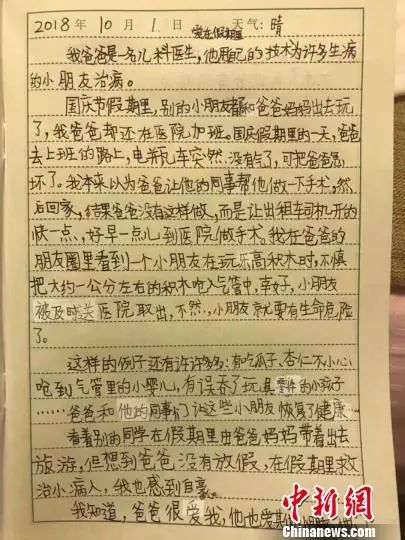 2018年10月1日 天气:晴
爱在假期里
我爸爸是一名儿科医生,他用自己的技术为许多生病
的小朋友治病。
国庆节假期里,别的小朋友都和爸爸妈妈出去玩
了,我爸爸却还在医院加班。国庆假期里的一天,爸爸
去上班的路上,电瓶车突然没有气了,可把爸爸急
坏了。我本来以为爸爸让他的同事帮他做一下手术,然
后回家,结果爸爸没有这样做,而是让出租车司机开的
快一点,好早一点儿到医院做手术。我在爸爸的
朋友圈里看到一个小朋友在玩乐高积木时,不慎
把大约一公分左右的积木呛入气管中,幸好,小朋友
被及时送医院取出,不然,小朋友就要有生命危险
了。
这样的例子还有许许多多:有吃瓜子、杏仁不小心
呛到气管里的小婴儿,有误吞了玩具零件的小孩子
……爸爸和他的同事们让这些小朋友恢复了健康…
看着别的同学在假期里由爸爸妈妈带着出去
旅游,但想到爸爸没有放假,在假期里救
治小病人,我也感到自豪。
我知道,爸爸很爱我,他也爱
中新网